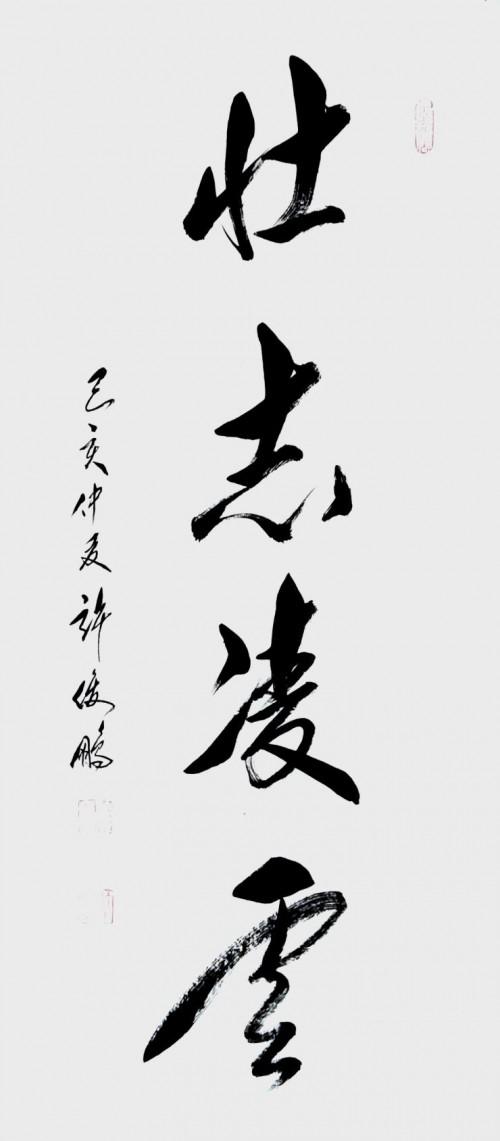 壮志凌云
己亥仲夏许俊鹏